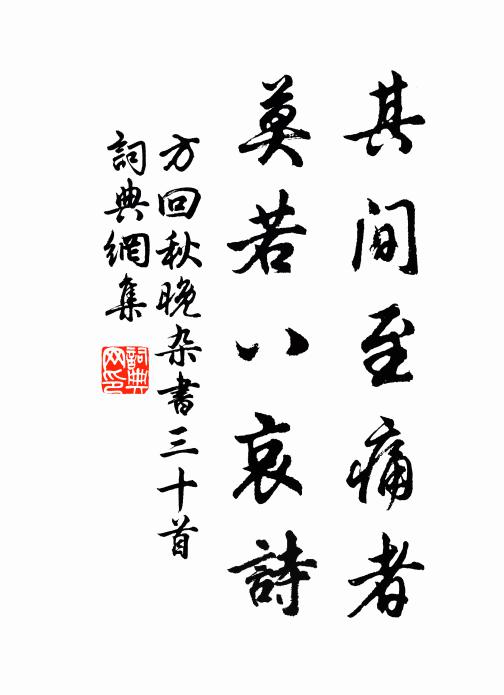 其间至痛者
莫若八哀詩
方回秋晚杂書三十首
詞典網集
詞典网印